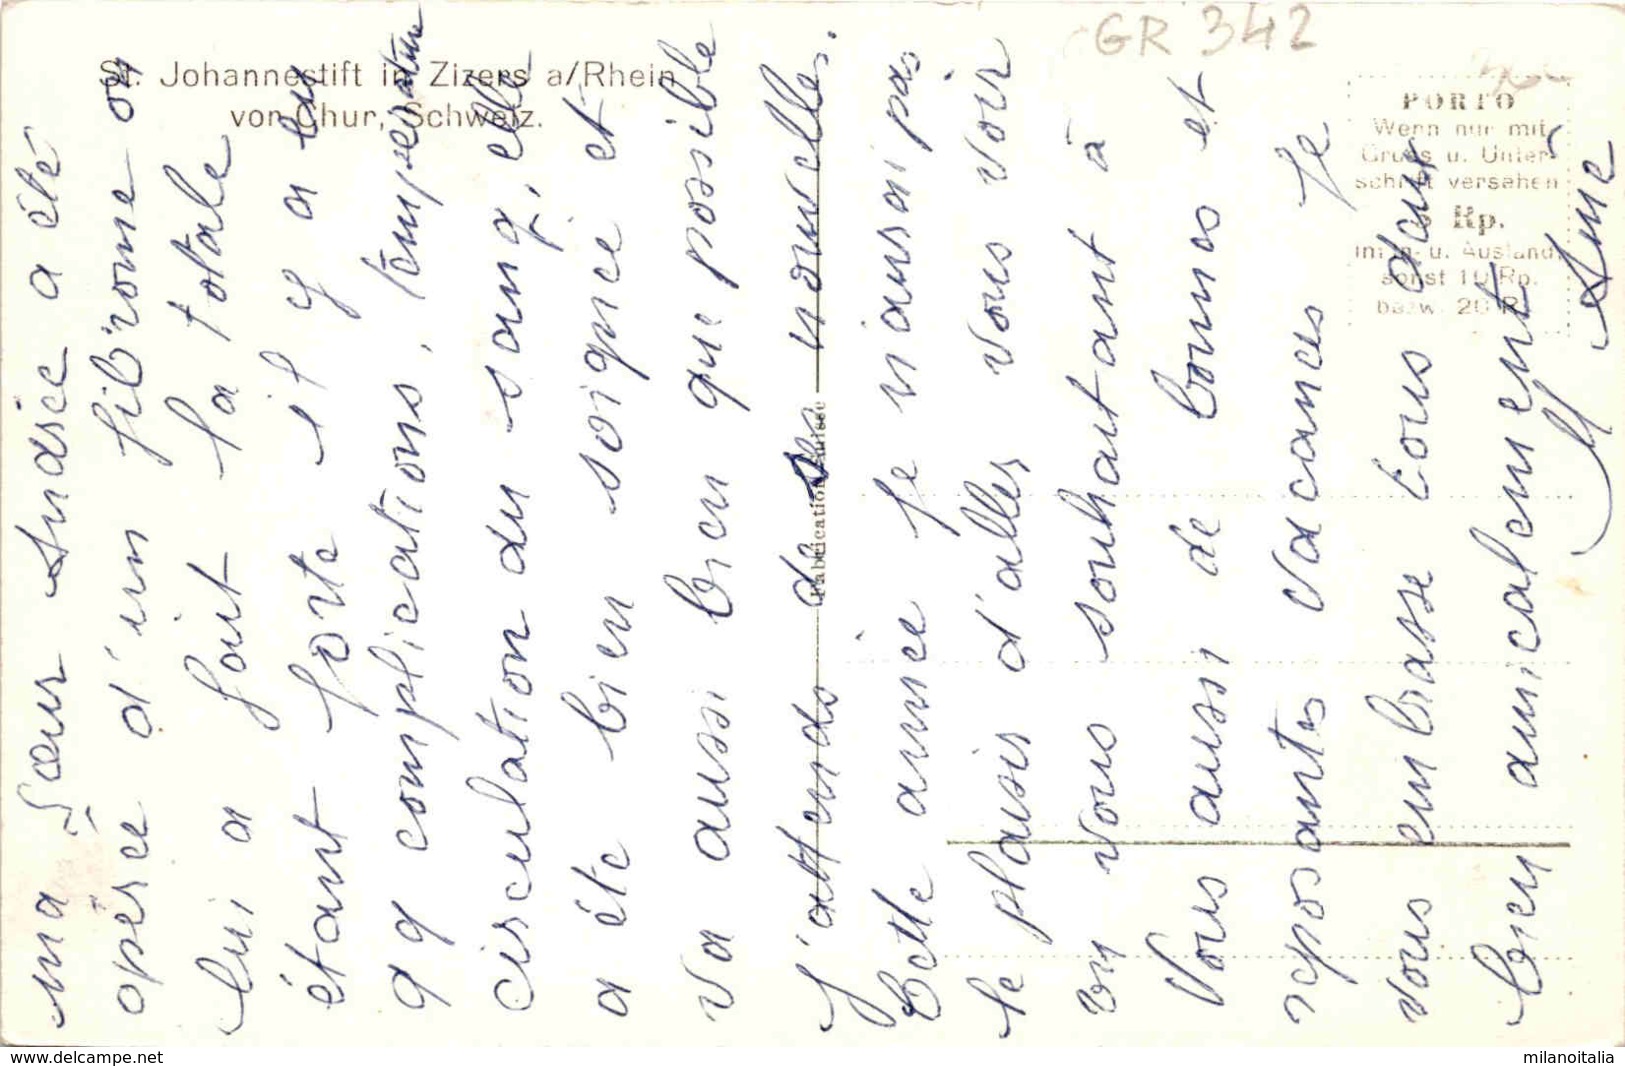 GR 342
St. Johannesstift in Zizers a/Rhein
von Chur, Schweiz.
PORTO
Wenn nur mit
Gruss u. Unter-
schrift versehen
5 Rp.
im In- u. Ausland,
sonst 10 Rp.
bezw. 20 Rp.
Fabrication Suisse
ma Sœur Andrée a été
opérée d'un fibrome on
lui a fait la totale
étant forte il y a eu
qq complications, température
circulation du sang, elle
a été bien soignée et
va aussi bien que possible
J'attends de ses nouvelles.
Cette année je n'aurai pas
le plaisir d'aller vous voir
en vous souhaitant à
Vous aussi de bonnes et
reposantes vacances Je
vous embrasse tous deux
bien amicalement
www.delcampe.net
milanoitalia